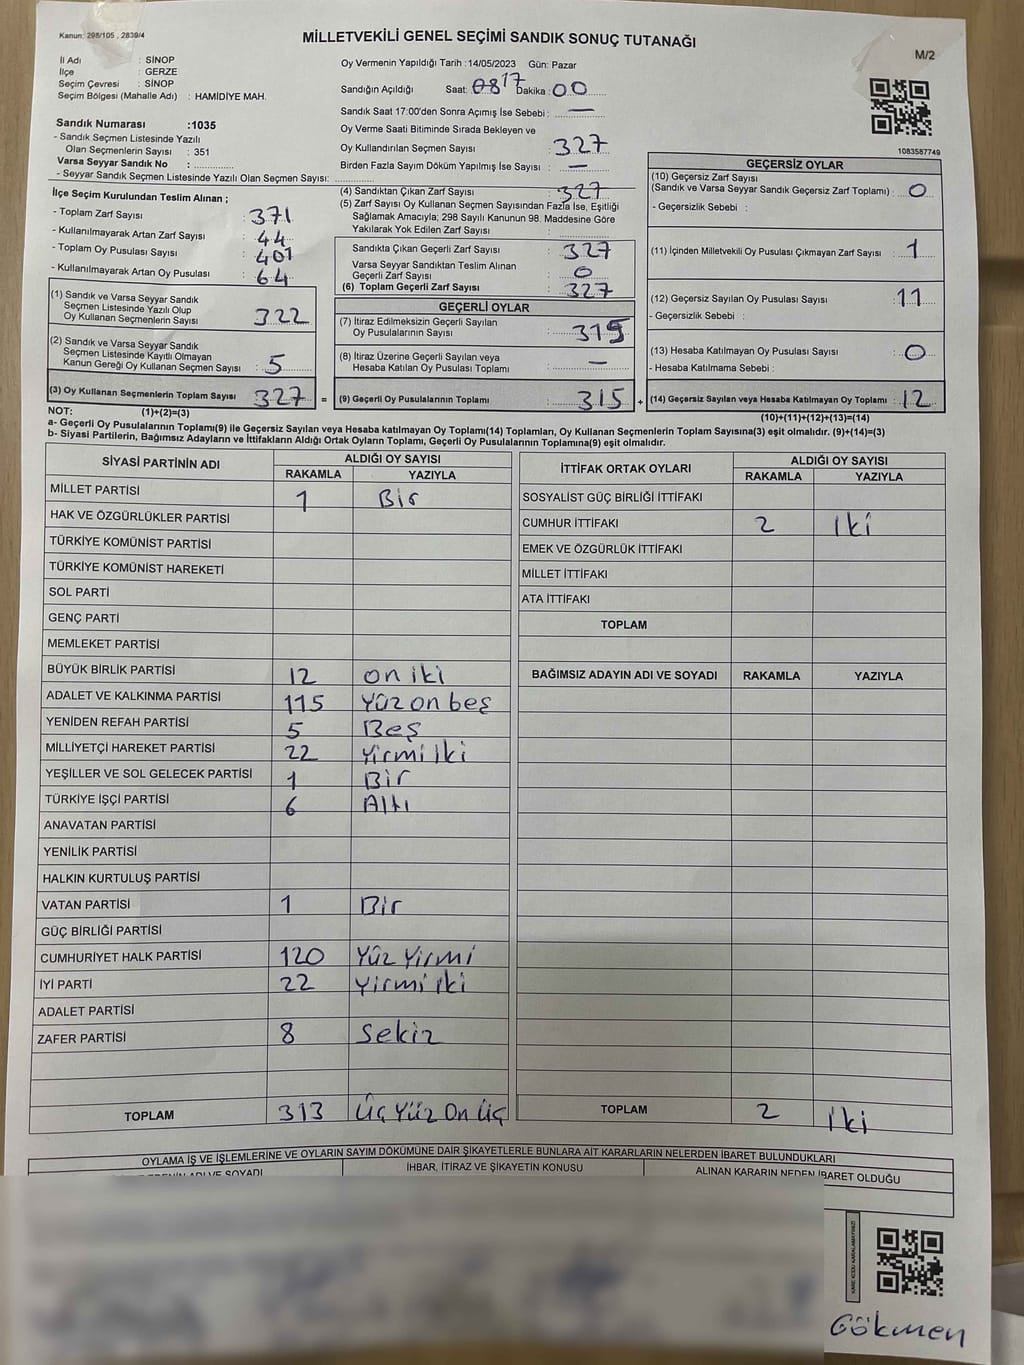 Kanun: 298/105 , 2839/4
MİLLETVEKİLİ GENEL SEÇİMİ SANDIK SONUÇ TUTANAĞI
M/2
İl Adı : SİNOP
İlçe : GERZE
Seçim Çevresi : SİNOP
Seçim Bölgesi (Mahalle Adı) : HAMİDİYE MAH.
Sandık Numarası :1035
- Sandık Seçmen Listesinde Yazılı
Olan Seçmenlerin Sayısı : 351
Varsa Seyyar Sandık No :
- Seyyar Sandık Seçmen Listesinde Yazılı Olan Seçmen Sayısı:
Oy Vermenin Yapıldığı Tarih :14/05/2023 Gün: Pazar
Sandığın Açıldığı Saat: 08 17 Dakika: 00
Sandık Saat 17:00'den Sonra Açımış İse Sebebi : —
Oy Verme Saati Bitiminde Sırada Bekleyen ve
Oy Kullandırılan Seçmen Sayısı : 327
Birden Fazla Sayım Döküm Yapılmış İse Sayısı : —
1083587749
İlçe Seçim Kurulundan Teslim Alınan ;
- Toplam Zarf Sayısı : 371
- Kullanılmayarak Artan Zarf Sayısı : 44
- Toplam Oy Pusulası Sayısı : 401
- Kullanılmayarak Artan Oy Pusulası : 64
(1) Sandık ve Varsa Seyyar Sandık
Seçmen Listesinde Yazılı Olup
Oy Kullanan Seçmenlerin Sayısı : 322
(2) Sandık ve Varsa Seyyar Sandık
Seçmen Listesinde Kayıtlı Olmayan
Kanun Gereği Oy Kullanan Seçmen Sayısı : 5
(3) Oy Kullanan Seçmenlerin Toplam Sayısı : 327 =
(4) Sandıktan Çıkan Zarf Sayısı : 327
(5) Zarf Sayısı Oy Kullanan Seçmen Sayısından Fazla İse, Eşitliği
Sağlamak Amacıyla; 298 Sayılı Kanunun 98. Maddesine Göre
Yakılarak Yok Edilen Zarf Sayısı :
Sandıkta Çıkan Geçerli Zarf Sayısı : 327
Varsa Seyyar Sandıktan Teslim Alınan
Geçerli Zarf Sayısı : 0
(6) Toplam Geçerli Zarf Sayısı : 327
GEÇERLİ OYLAR
(7) İtiraz Edilmeksizin Geçerli Sayılan
Oy Pusulalarının Sayısı : 315
(8) İtiraz Üzerine Geçerli Sayılan veya
Hesaba Katılan Oy Pusulası Toplamı : —
(9) Geçerli Oy Pusulalarının Toplamı : 315 +
GEÇERSİZ OYLAR
(10) Geçersiz Zarf Sayısı
(Sandık ve Varsa Seyyar Sandık Geçersiz Zarf Toplamı) : 0
- Geçersizlik Sebebi :
(11) İçinden Milletvekili Oy Pusulası Çıkmayan Zarf Sayısı : 1
(12) Geçersiz Sayılan Oy Pusulası Sayısı : 11
- Geçersizlik Sebebi :
(13) Hesaba Katılmayan Oy Pusulası Sayısı : 0
- Hesaba Katılmama Sebebi :
(14) Geçersiz Sayılan veya Hesaba Katılmayan Oy Toplamı : 12
NOT: (1)+(2)=(3) (10)+(11)+(12)+(13)=(14)
a- Geçerli Oy Pusulalarının Toplamı(9) ile Geçersiz Sayılan veya Hesaba katılmayan Oy Toplamı(14) Toplamları, Oy Kullanan Seçmenlerin Toplam Sayısına(3) eşit olmalıdır. (9)+(14)=(3)
b- Siyasi Partilerin, Bağımsız Adayların ve İttifakların Aldığı Ortak Oyların Toplamı, Geçerli Oy Pusulalarının Toplamına(9) eşit olmalıdır.
SİYASİ PARTİNİN ADI ALDIĞI OY SAYISI
RAKAMLA YAZIYLA
MİLLET PARTİSİ 1 Bir
HAK VE ÖZGÜRLÜKLER PARTİSİ
TÜRKİYE KOMÜNİST PARTİSİ
TÜRKİYE KOMÜNİST HAREKETİ
SOL PARTİ
GENÇ PARTİ
MEMLEKET PARTİSİ
BÜYÜK BİRLİK PARTİSİ 12 on iki
ADALET VE KALKINMA PARTİSİ 115 Yüz on beş
YENİDEN REFAH PARTİSİ 5 Beş
MİLLİYETÇİ HAREKET PARTİSİ 22 Yirmi iki
YEŞİLLER VE SOL GELECEK PARTİSİ 1 Bir
TÜRKİYE İŞÇİ PARTİSİ 6 Altı
ANAVATAN PARTİSİ
YENİLİK PARTİSİ
HALKIN KURTULUŞ PARTİSİ
VATAN PARTİSİ 1 Bir
GÜÇ BİRLİĞİ PARTİSİ
CUMHURİYET HALK PARTİSİ 120 Yüz Yirmi
İYİ PARTİ 22 Yirmi iki
ADALET PARTİSİ
ZAFER PARTİSİ 8 Sekiz
TOPLAM 313 Üç Yüz On Üç
İTTİFAK ORTAK OYLARI ALDIĞI OY SAYISI
RAKAMLA YAZIYLA
SOSYALİST GÜÇ BİRLİĞİ İTTİFAKI
CUMHUR İTTİFAKI 2 iki
EMEK VE ÖZGÜRLÜK İTTİFAKI
MİLLET İTTİFAKI
ATA İTTİFAKI
TOPLAM
BAĞIMSIZ ADAYIN ADI VE SOYADI RAKAMLA YAZIYLA
TOPLAM 2 iki
OYLAMA İŞ VE İŞLEMLERİNE VE OYLARIN SAYIM DÖKÜMÜNE DAİR ŞİKAYETLERLE BUNLARA AİT KARARLARIN NELERDEN İBARET BULUNDUKLARI
ADI VE SOYADI İHBAR, İTİRAZ VE ŞİKAYETİN KONUSU ALINAN KARARIN NEDEN İBARET OLDUĞU
Gökmen